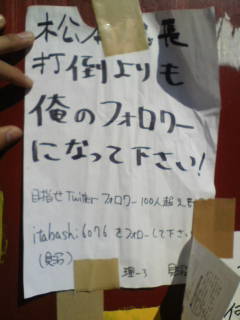 松本 長
打倒よりも
俺のフォロワー
になって下さい!
目指せTwitterフォロワー100人超え
itabashi6076をフォローして下さい